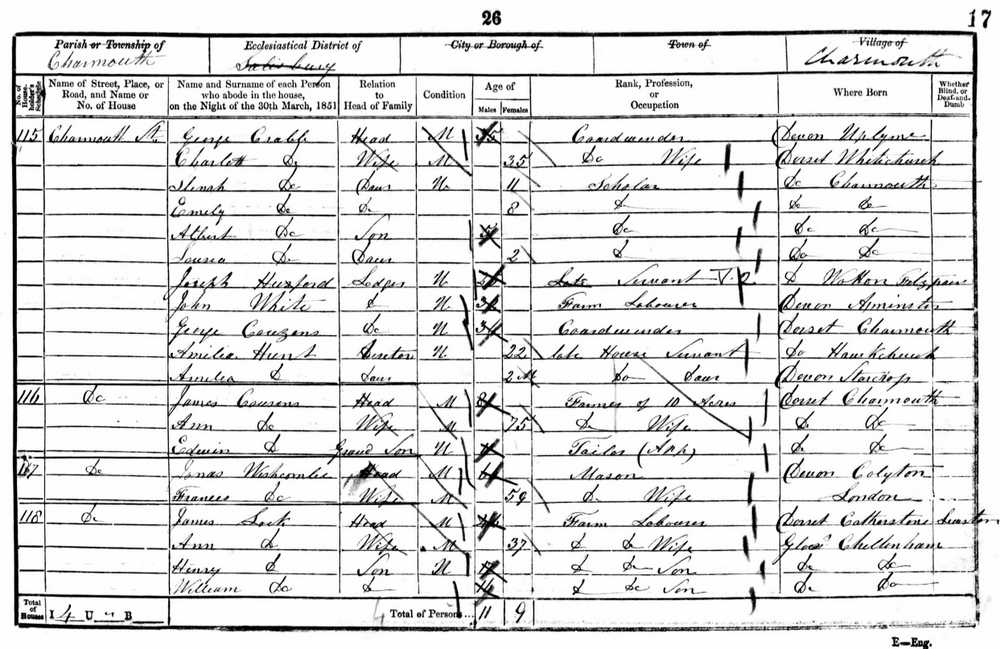 26
17
Parish or Township of Charmouth
Ecclesiastical District of Salisbury
City or Borough of
Town of
Village of Charmouth
No. of House-holder's Schedule
Name of Street, Place, or Road, and Name or No. of House
Name and Surname of each Person who abode in the house, on the Night of the 30th March, 1851
Relation to Head of Family
Condition
Age of Males Females
Rank, Profession, or Occupation
Where Born
Whether Blind, or Deaf-and-Dumb
115 Charmouth St. George Crabb Head M Coardwender Devon Uplyme
Charlott Do Wife M 35 Do Wife Dorset Whitchurch
Do Daur U 11 Scholar Do Charmouth
Emily Do Do 8 Do Do Do
Albert Do Son Do Do Do
Louisa Do Daur 2 Do Do Do
Joseph Huxford Lodger U Servant Do Wotton Fitzpaine
John White Do U Farm Labourer Devon Axminster
George Couzens Do U Coardwender Dorset Charmouth
Amelia Hunt Visetor U 22 late House Servant Do Hawkchurch
Amelia Do Daur 2 M Do Daur Devon Starcross
116 Do James Cousens Head M Farmer of 10 Acres Dorset Charmouth
Ann Do Wife M 75 Do Wife Do Do
Edwin Do Grand Son U Tailor (App) Do Do
117 Do Jonas Wishcombe Head M Mason Devon Colyton
Frances Do Wife M 59 Do Wife London
118 Do James Lock Head M Farm Labourer Dorset Catherstone Leweston
Ann Do Wife M 37 Do Do Wife Glos Cheltenham
Henry Do Son U Do Do Son Do Do
William Do Do Do Do Son Do Do
Total of Houses I 4 U B Total of Persons 11 9
E—Eng.